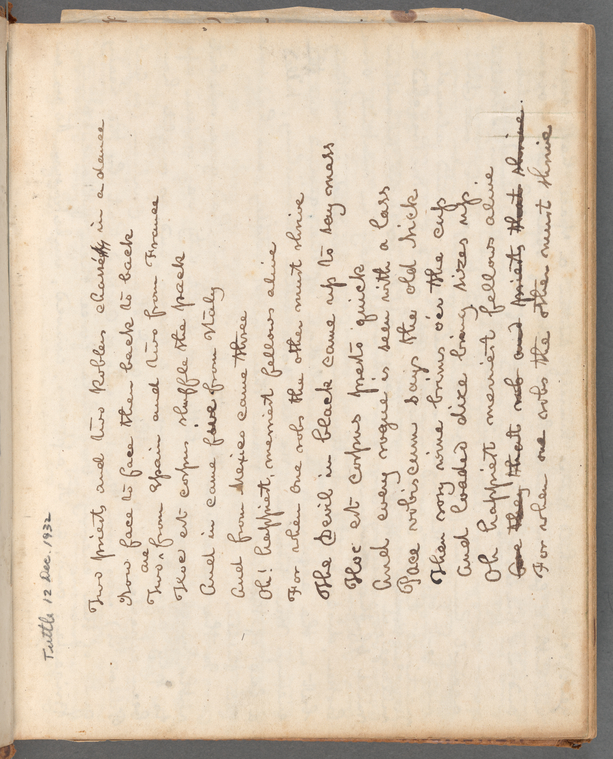 Tuttle 12 Dec. 1932
Two priests and two robbers chassé in a dance
Now face to face then back to back
Two are from Spain and two from France
Hoc est corpus shuffle the pack
And in came five from Italy
And from Mexico came three
Oh! happiest, merriest fellows alive
For when one robs the other must shrive
The Devil in black came up to say mass
Hoc est corpus presto quick
And every rogue is seen with a lass
Pace vobiscum says the old Nick
Then rosy wine brims o'er the cup
And loaded dice bring sizes up.
Oh happiest merriest fellows alive
Are they that rob and priests that shrive.
For when one robs the other must shrive